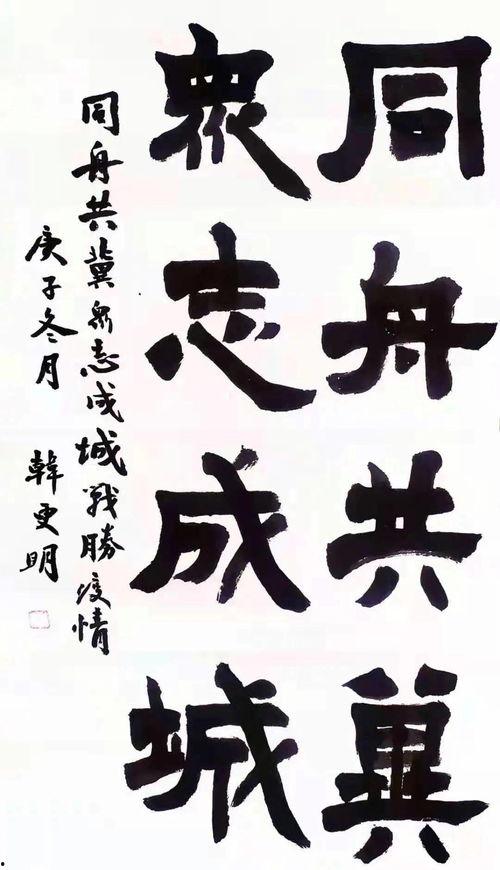 同舟共冀
衆志成城
同舟共冀衆志成城戰勝疫情
庚子冬月 韓更明